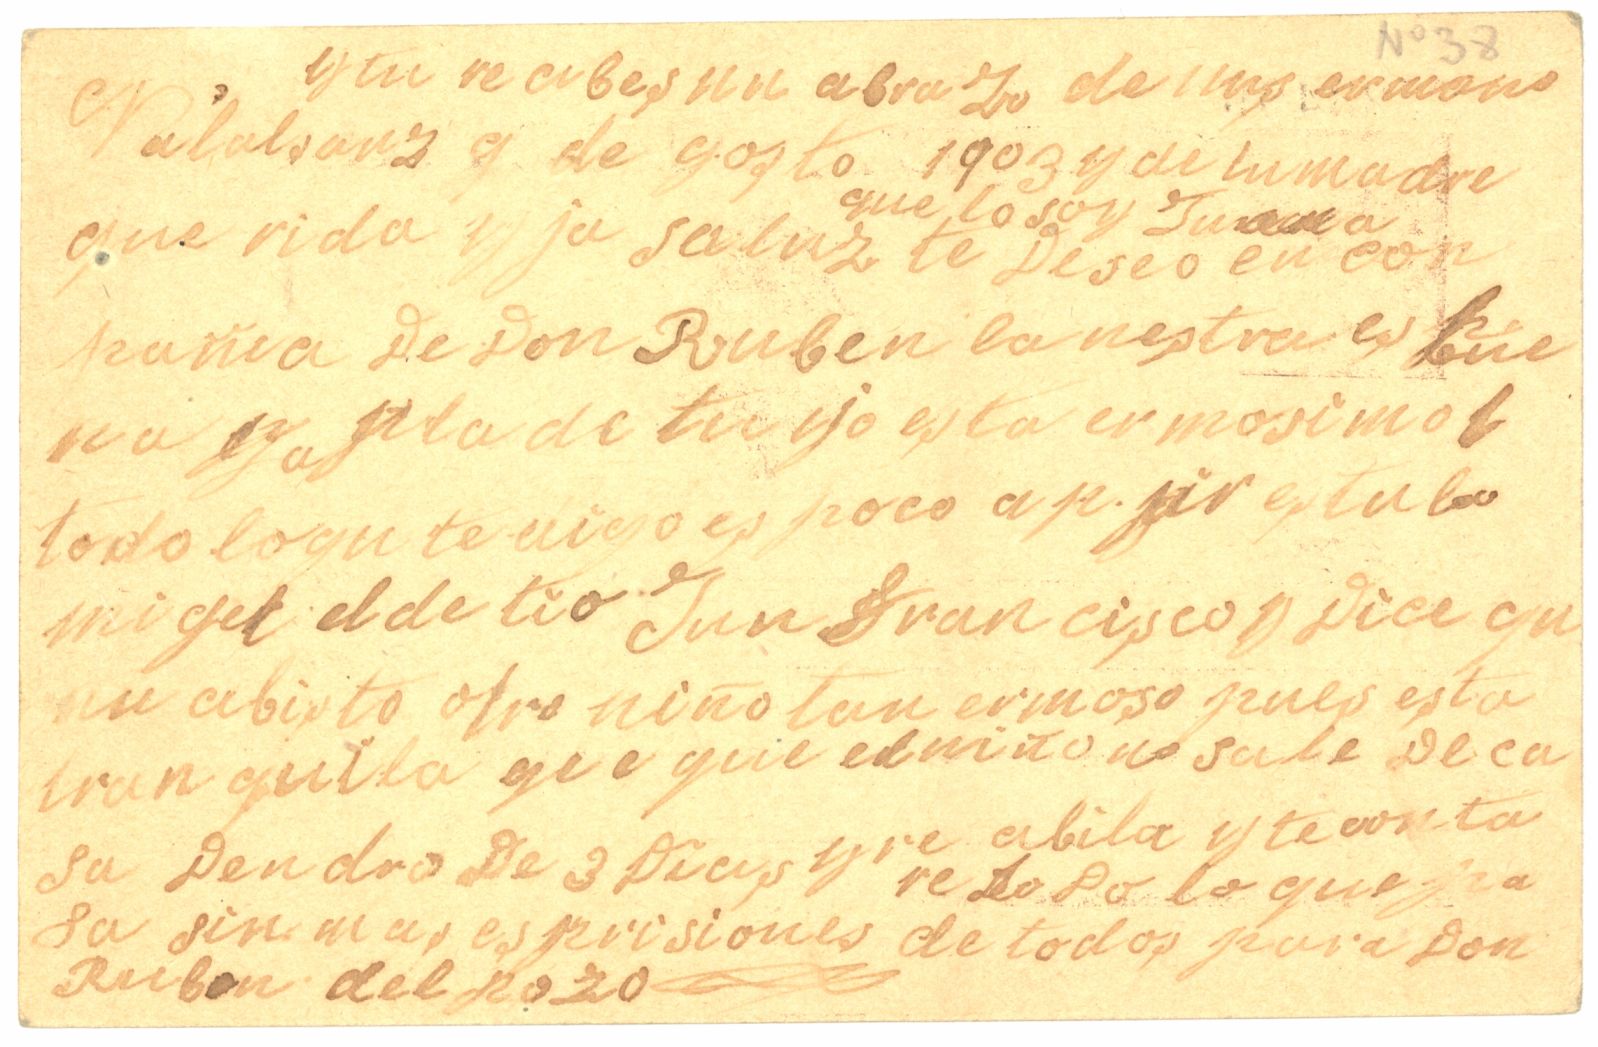 Nº 38
y tu recibes un abrazo de mis ermano
Nabalsauz 9 de gosto 1903 y de tu madre
que lo soy Juana
querida yja saluz te Deseo en con
pañia De Don Ruben la nestra es bue
na ya la de tu yjo esta ermosimo
todo loqu te digo es poco a estubo
migel el de tio Jun Francisco y Dice qu
nu abisto otro niño tan ermoso pues esta
tranquila que que el niño no sale De ca
sa Dendro De 3 Dias y re abila y te conta
re todo lo que pa
sa sin mas esprisiones de todos para Don
Ruben del pozo